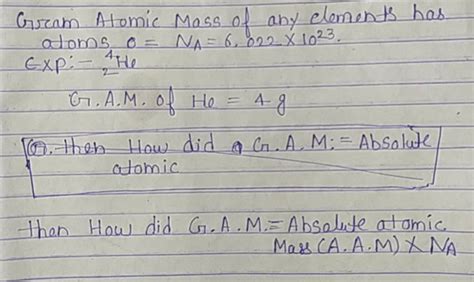 Gram Atomic Mass of any elements has
atoms 0 = NA = 6.022 X 10^23.
Exp:- ^4_2He
G.A.M. of He = 4 g
Q. then How did G.A.M. = Absolute
atomic
then How did G.A.M. = Absolute atomic
Mass (A.A.M) X NA